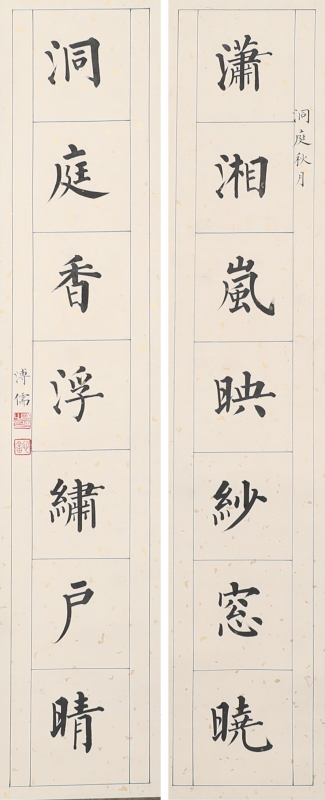 洞庭秋月
瀟湘嵐映紗窓曉
洞庭香浮繡戶晴
溥儒